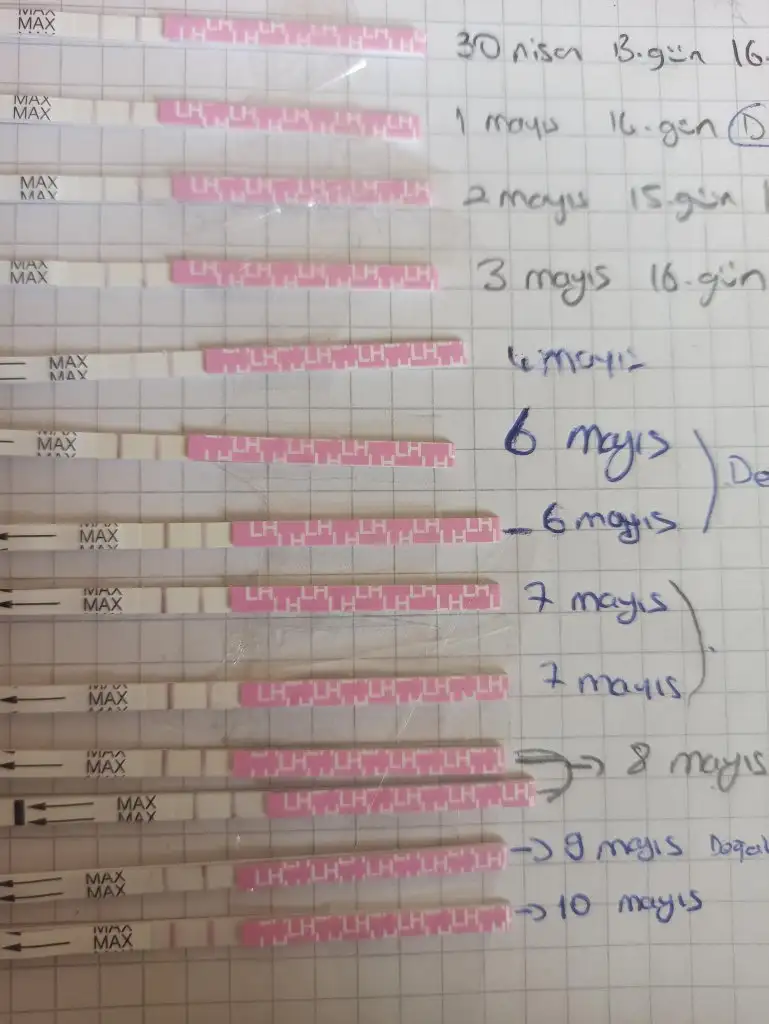 MAX
MAX
LH LH LH LH LH LH LH LH
30 nisan 13.gün 16.
MAX
MAX
LH LH LH LH LH LH LH LH
1 mayıs 14.gün D
MAX
MAX
LH LH LH LH LH LH LH LH
2 mayıs 15.gün
MAX
MAX
LH LH LH LH LH LH LH LH
3 mayıs 16.gün
MAX
MAX
LH LH LH LH LH LH LH LH
4 mayıs
MAX
MAX
LH LH LH LH LH LH LH LH
6 mayıs
De
MAX
MAX
LH LH LH LH LH LH LH LH
6 mayıs
MAX
MAX
LH LH LH LH LH LH LH LH
7 mayıs
MAX
MAX
LH LH LH LH LH LH LH LH
7 mayıs
MAX
MAX
LH LH LH LH LH LH LH LH
8 mayıs
MAX
MAX
LH LH LH LH LH LH LH LH
MAX
MAX
LH LH LH LH LH LH LH LH
9 mayıs Doğal
MAX
MAX
LH LH LH LH LH LH LH LH
10 mayıs